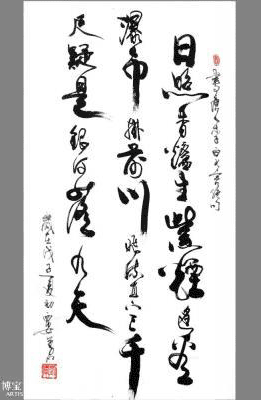 日照香爐生紫煙遙看
瀑布掛前川飛流直下三千
尺疑是銀河落九天
歲在戊子夏初
博宝
ARTIS